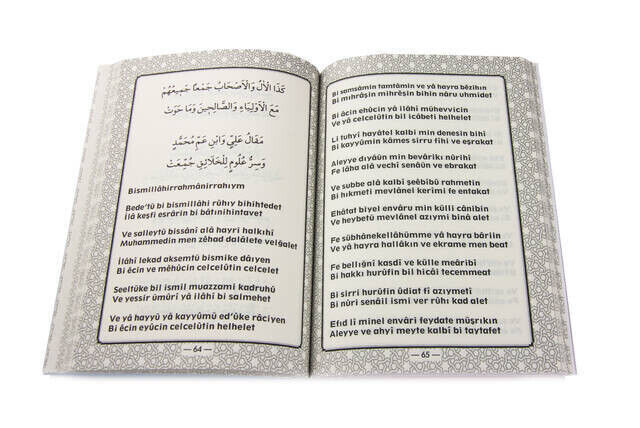 كَذَا الْاٰلُ وَالْاَصْحَابُ جَمْعًا جَمِيعُهُمْ
مَعَ الْاَوْلِيَاءِ وَالصَّالِحِينَ وَمَا حَوَتْ
مَقَالُ عَلِيٍّ وَابْنِ عَمِّ مُحَمَّدٍ
وَسِرُّ عُلُومٍ لِلْخَلَائِقِ جُمِّعَتْ
Bismillâhirrahmânirrahıym
Bede'tü bi bismillâhi rûhıy bihihtedet
ilâ keşfi esrârin bi bâtınihintavet
Ve salleytü bissânî alâ hayri halkıhî
Muhammedin men zêhad dalâlete velğalet
İlâhî lekad aksemtü bismike dâıyen
Bi êcin ve mêhûcin celcelûtin celcelet
Seeltüke bil ismil muazzami kadruhû
Ve yessir ümûrî yâ ilâhî bi salmehet
Ve yâ hayyü yâ kayyûmü ed'ûke râciyen
Bi êcin eyûcin celcelûtin helhelet
— 64 —
Bi samsâmin tamtâmin ve yâ hayra bêzihın
Bi mıhrâşin mihrêşin bihin nâru uhmidet
Bi âcin ehûcin yâ ilâhî mühevvicin
Ve yâ celcelûtin bil icâbeti helhelet
Li tuhyî hayâtel kalbi min denesin bihî
Bi kayyûmin kâmes sirru fîhi ve eşrakat
Aleyye dıyâün min bevârikı nûrihî
Fe lâha alâ vechî senâün ve ebrakat
Ve subbe alâ kalbî şeêbîbü rahmetin
Bi hıkmeti mevlânel kerîmi fe entakat
Ehâtat biyel envâru min külli cânibin
Ve heybetü mevlânel azıymi binâ alet
Fe sübhânekellâhümme yâ hayra bâriin
Ve yâ hayra hallâkın ve ekrame men beat
Fe bellığnî kasdî ve külle meâribî
Bi hakkı hurûfin bil hicâi tecemmeat
Bi sirri hurûfin ûdiat fî azıymetî
Bi nûri senâil ismi ver rûhı kad alet
Efıd lî minel envâri feydate müşrıkın
Aleyye ve ahyi meyte kalbî bi taytafet
— 65 —